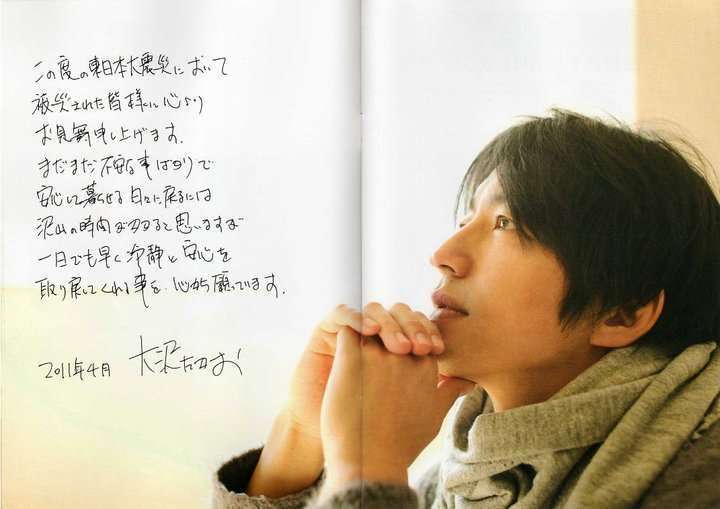 この度の東日本大震災において
被災された皆様に心より
お見舞申し上げます。
まだまだ不安な事ばかりで
安心して暮せる日々に戻るには
沢山の時間がかかると思いますが
一日でも早く冷静と安心を
取り戻してくれる事を、心から願っています。
2011年4月 大沢たかお